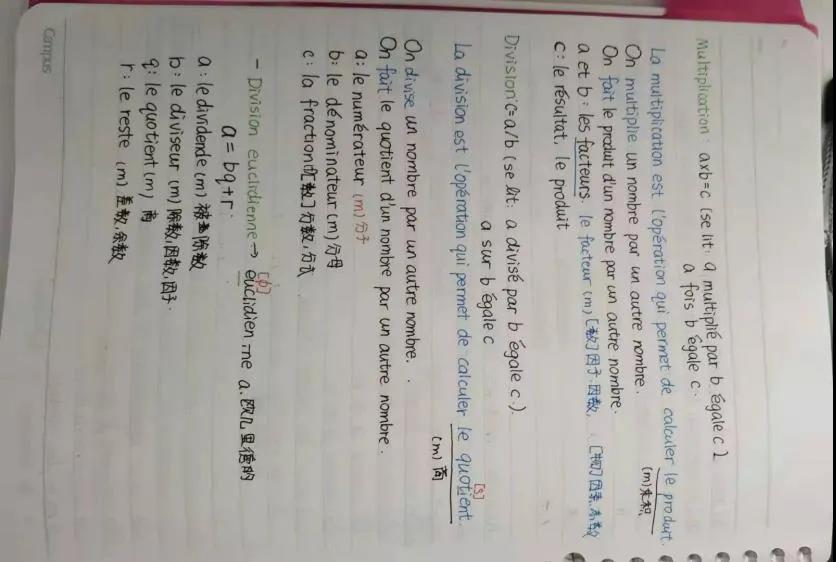 Multiplication : axb=c (se lit: a multiplié par b égale c)
a fois b égale c.
La multiplication est l'opération qui permet de calculer le produit.
(m)乘积
On multiplie un nombre par un autre nombre.
On fait le produit d'un nombre par un autre nombre.
a et b : les facteurs. le facteur (m) [数]因子.因数, [物]因素,系数
c : le résultat, le produit
Division: c=a/b (se lit: a divisé par b égale c.)
a sur b égale c
[s]
La division est l'opération qui permet de calculer le quotient.
(m) 商
On divise un nombre par un autre nombre.
On fait le quotient d'un nombre par un autre nombre.
a: le numérateur (m)分子
b: le dénominateur (m)分母
c: la fraction[数]分数,分式
[ø]
- Division euclidienne → euclidien -ne a.欧几里德的
a = bq + r :
a : le dividende (m) 被除数
b : le diviseur (m) 除数,因数,因子.
q: le quotient (m) 商
r : le reste (m) 差数,余数
Campus